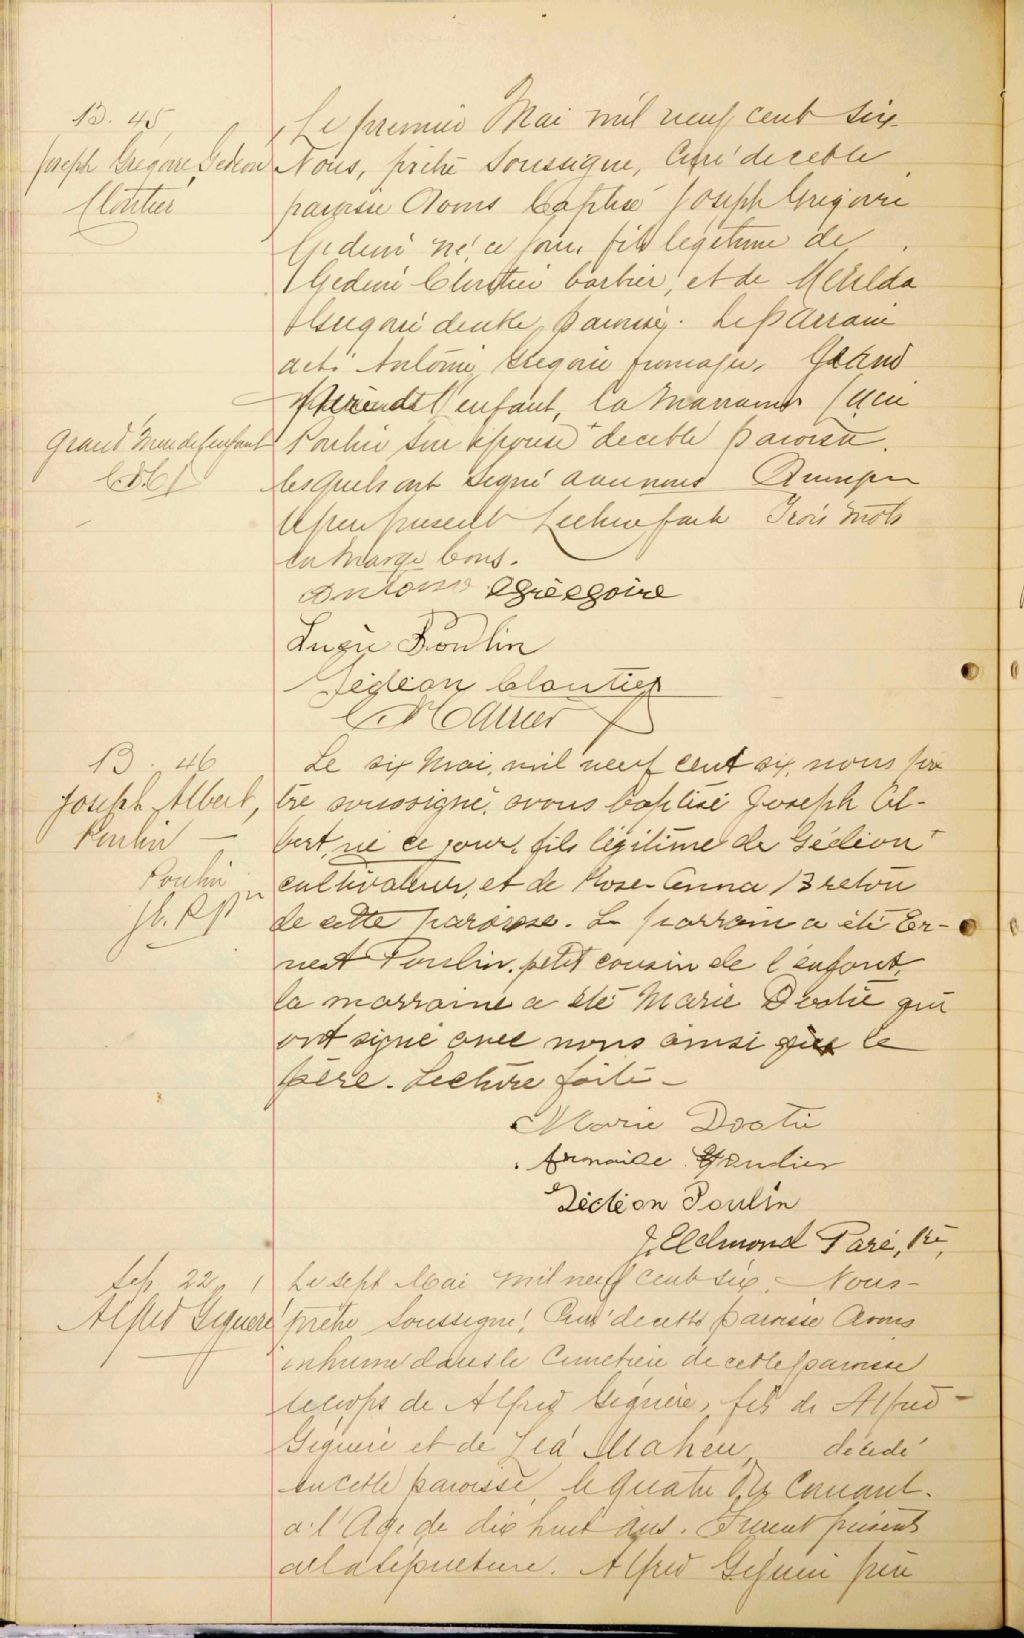 B. 45
Joseph Grégoire Gedeon
Cloutier
Le premier Mai mil neuf cent six
Nous, prêtre soussigné, Curé de cette
paroisse avons baptisé Joseph Grégoire
Gedeon né ce jour, fils légitime de
Gedeon Cloutier barbier, et de
Grégoire de cette paroisse. Le parrain
a été Antoine Grégoire fromager, Grand
père de l'enfant, la marraine Lucie
Poulin son épouse + de cette paroisse.
Grand'Mère de l'enfant
lesquels ont signé avec nous Ainsi que
le père présent Lecture faite Trois mots
en marge bons.
Antoine Grégoire
Lucie Poulin
Gédéon Cloutier
B. 46
Joseph Albert,
Poulin —
Le six Mai, mil neuf cent six, nous prê
tre soussigné, avons baptisé Joseph Al-
bert, né ce jour, fils légitime de Gédéon +
Poulin
cultivateur, et de Rose-Anna Breton
de cette paroisse. Le parrain a été Er-
nest Poulin, petit cousin de l'enfant,
la marraine a été Marie Dostie qui
ont signé avec nous ainsi que le
père. Lecture faite —
Marie Dostie
Gédéon Poulin
J. Edmond Paré, Ptre,
Sep. 22
Alfred Giguère
Le sept Mai mil neuf cent six, Nous
prêtre soussigné, Curé de cette paroisse avons
inhumé dans le Cimetière de cette paroisse
le corps de Alfred Giguère, fils de Alfred
Giguère et de Léa Maheu, décédé
en cette paroisse, le quatre du courant
a l'Age de dix huit ans. Furent présents
a la sépulture. Alfred Giguère père